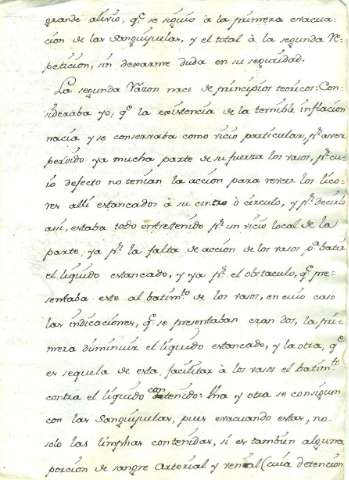 grande alivio, q.e se siguio à la primera evacua
cion de las Sanguijuelas, y el total à la segunda re
peticion, sin dexarme duda en su seguridad.
La segunda Razon nace de principios teoricos: Con
sideraba yo, q.e la existencia de la terrible inflacion
nacia y se conservaba como vicio particular, p.r aver
perdido ya mucha parte de su fuerza los vasos, p.r cu
io defecto no tenian la accion para verter los lico
res alli estancados à su centro ò circulo, y p.r decirlo
asi, estaba todo entretenido p.r un vicio local de la
parte, ya p.r la falta de accion de los vasos p.a batir
el liquido estancado, y ya p.r el obstaculo, q.e pre
sentaba este al batim.to de los vasos, en cuio caso
las indicaciones, q.e se presentaban eran dos, la pri
mera diminuir el liquido estancado, y la otra, q.e
es sequela de esta, facilitar à los vasos el batim.to
contra el liquido contenido: Una y otra se consiguen
con las Sanguijuelas, pues evacuando estas, no
solo las limphas contenidas, si es tambien alguna
porcion de sangre Arterial y venal (cuia detencion